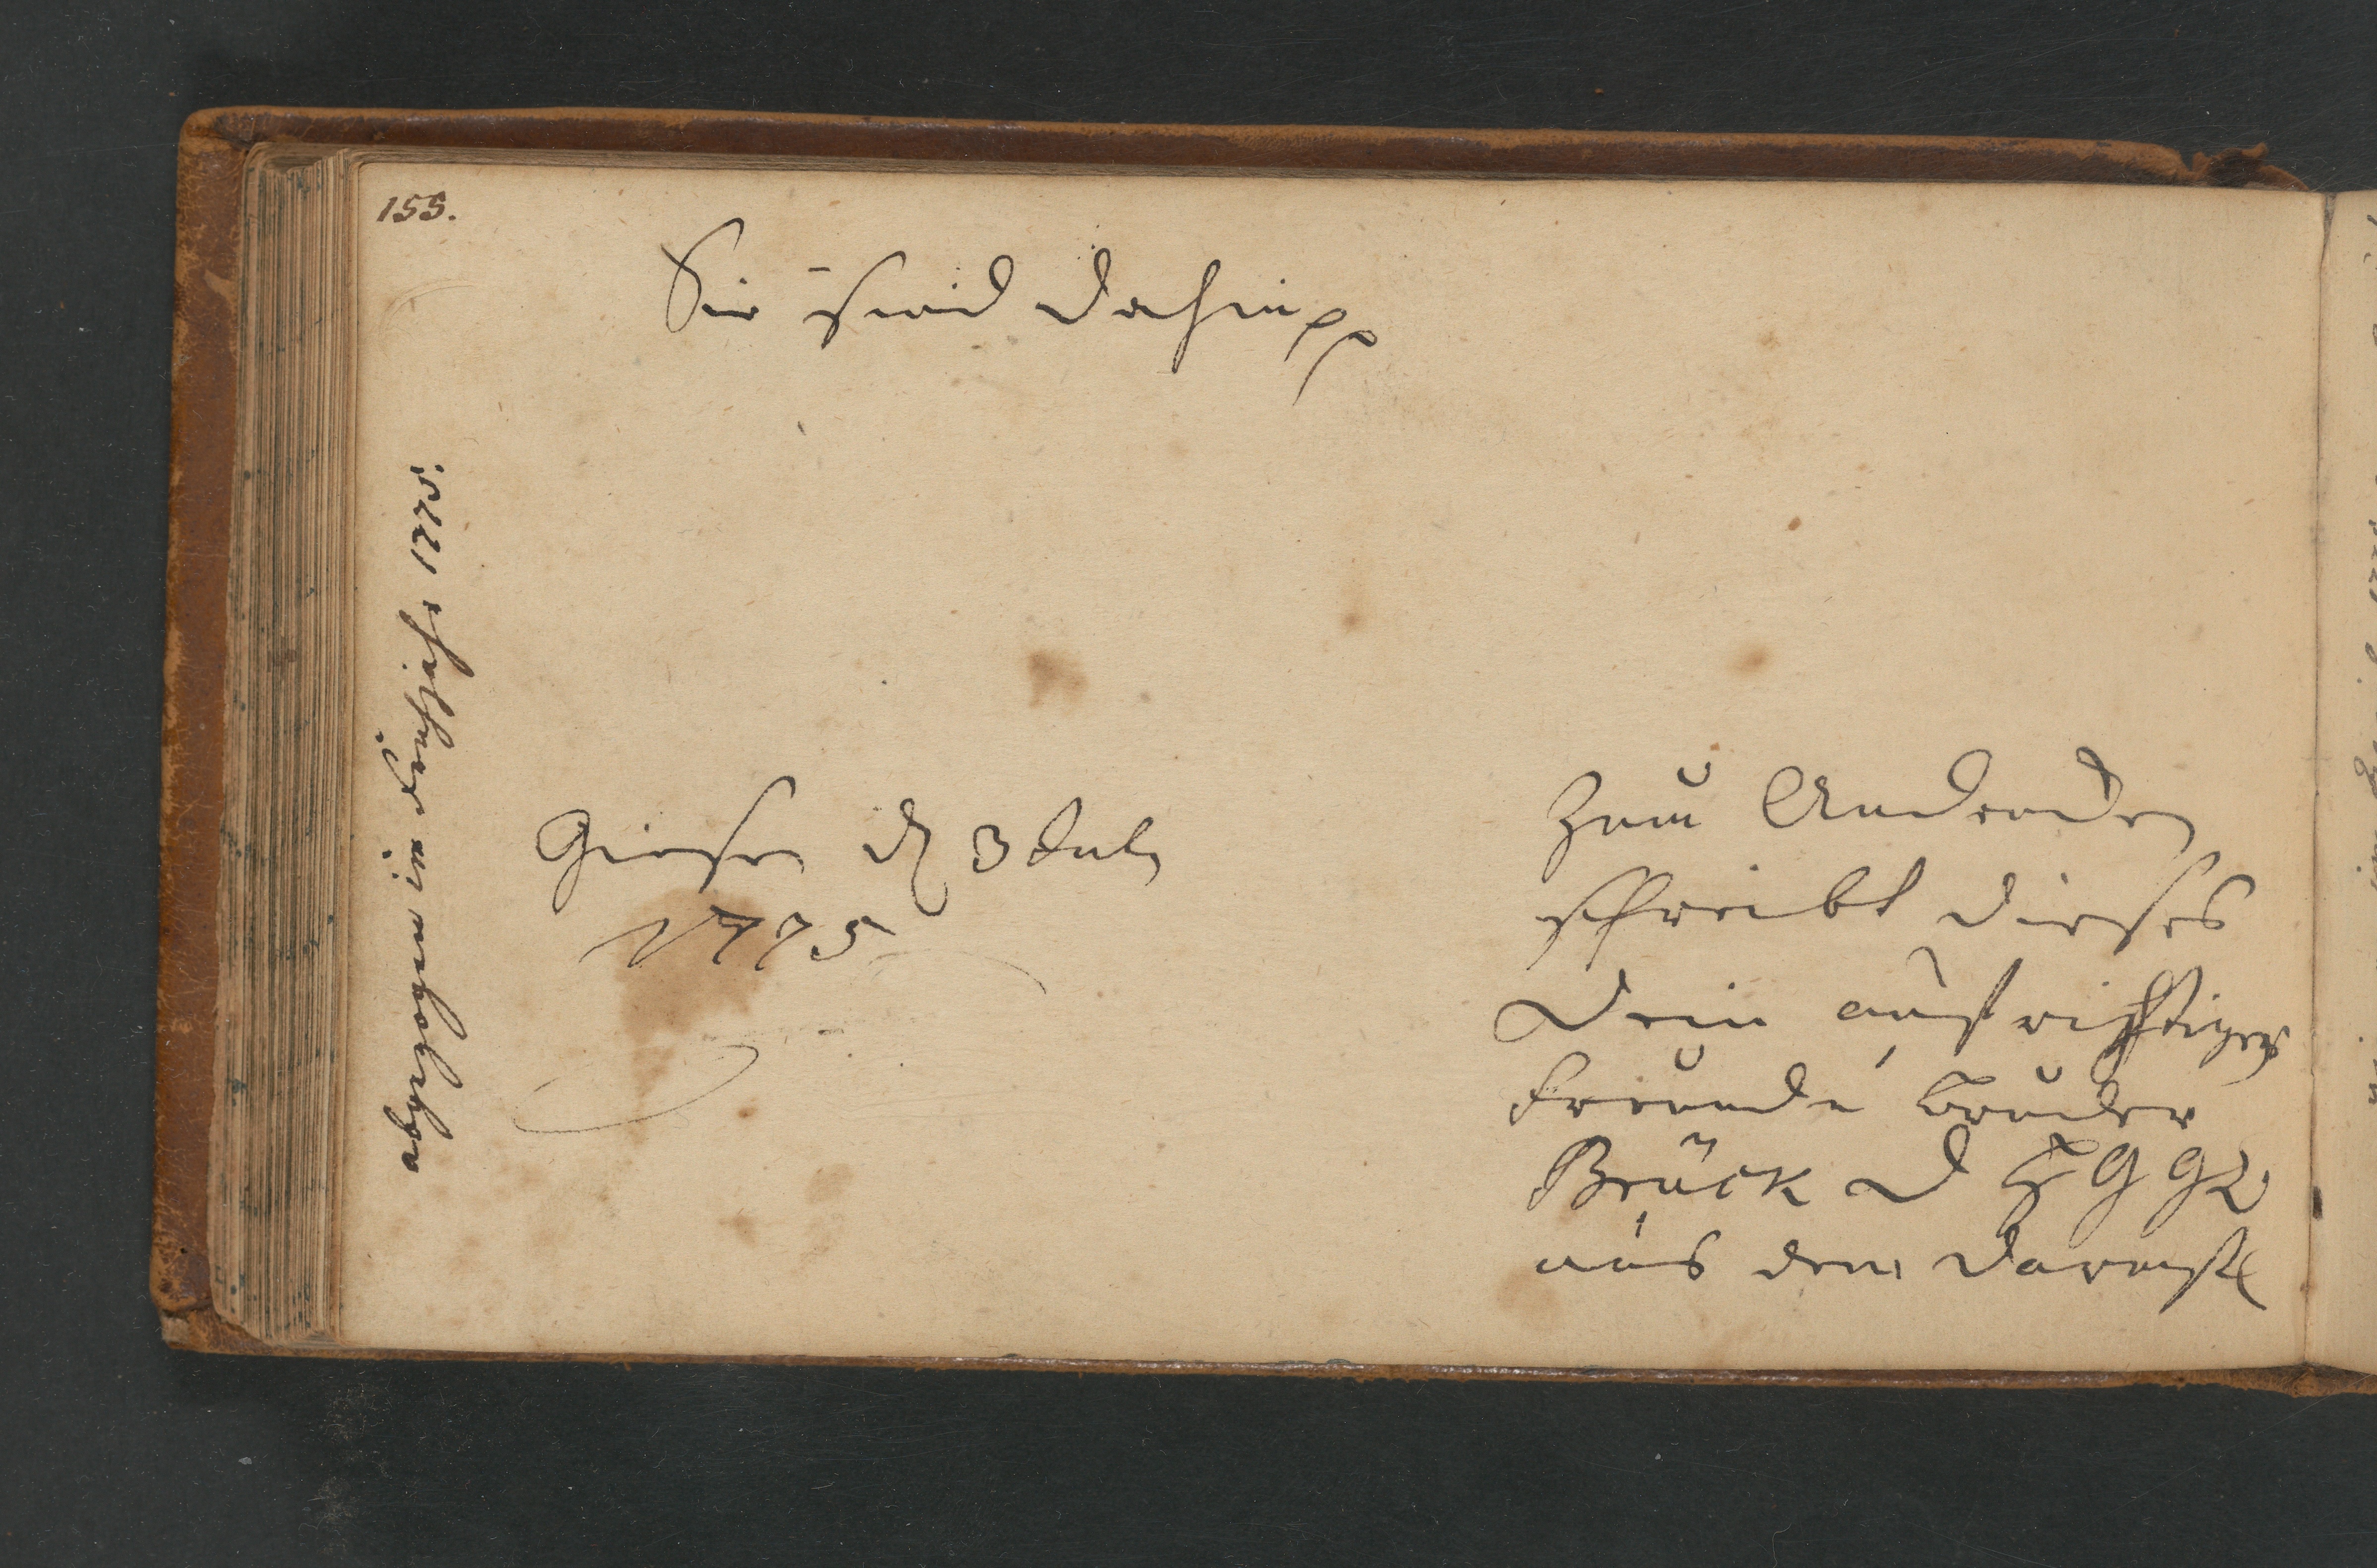 155.
Sie sind dahin pp
abgezogen im Frühjahr 1775.
Giesen d 3 Jul
1775
Zum Andencken
schreibt dieses
Dein aufrichtiger
Freund u Bruder
Brück d G G
aus dem Darmst